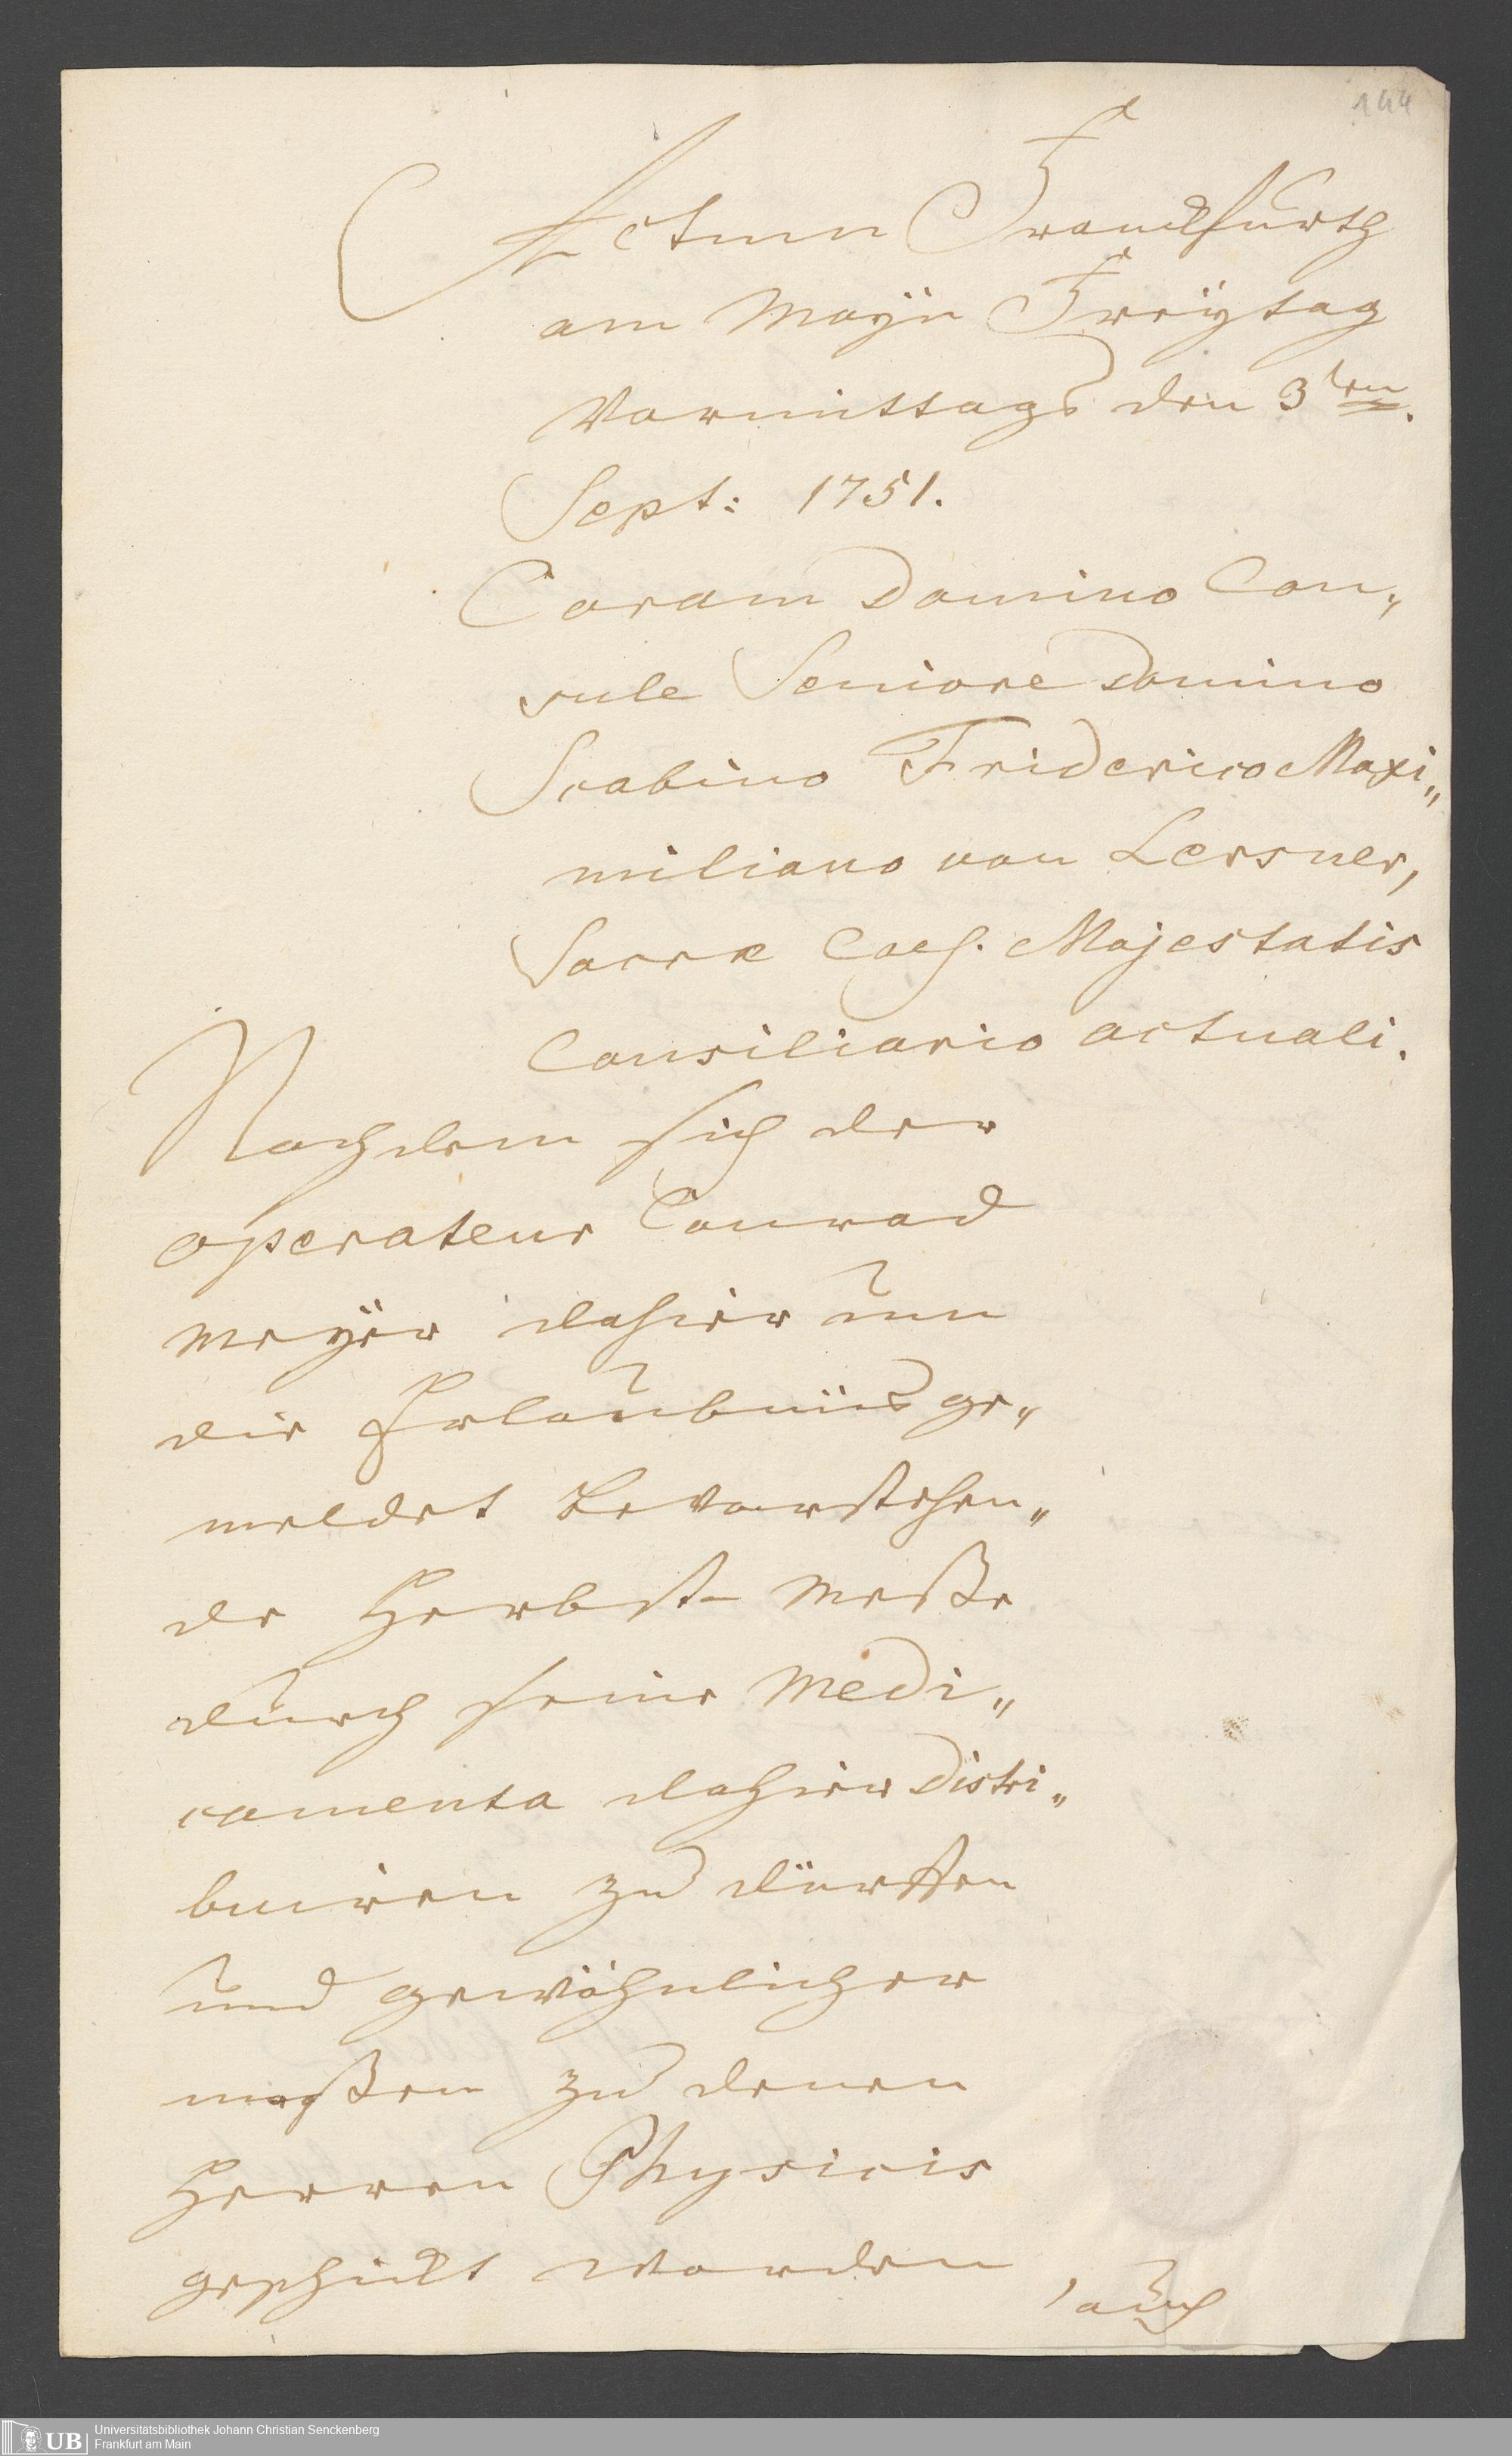 144
Actum Franckfurth
am Mayn Freytag
Vormittags den 3ten.
Sept: 1751.
Coram Domino Con„
sule Seniore Domino
Scabino Friderico Maxi„
miliano von Lersner,
Sacræ Caes. Majestatis
Consiliario actuali.
Nachdem sich der
operateur Conrad
Meyer dahier um
die Erlaubnüs ge„
meldet bevorstehen„
de Herbst-Meße
durch seine Medi„
camenta dahier Distri„
buiren zu dörffen
und gewöhnlicher
maßen zu denen
Herren Physicis
geschickt worden
, auch
UB
Universitätsbibliothek Johann Christian Senckenberg
Frankfurt am Main